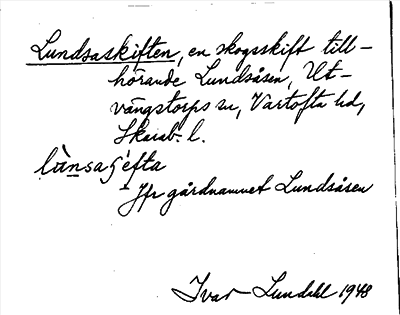 Lundsaskiften, en skogsskift till-
hörande Lundsåsen, Ut-
vängstorps sn, Vartofta hd,
Skarab. l.
lùnsaʃéfta
Jfr gårdnamnet Lundsåsen
Ivar Lundahl 1948